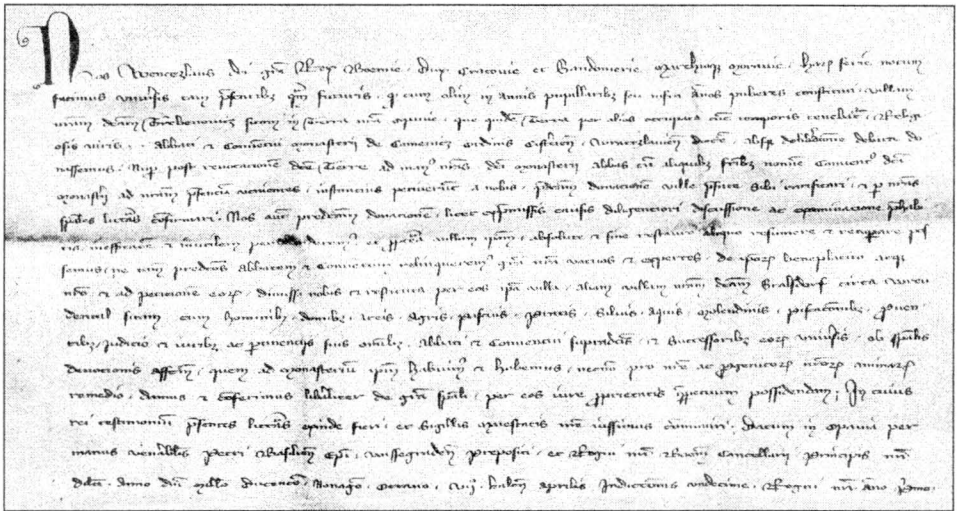 Nos Wenceslaus dei gra Rex Boemie. dux Cracovie et Sandomerie. Marchioque Moravie. harum serie notum
facimus universis tam presentibus quam futuris. quod cum olim in annis pupillaribus seu infra annos puberes constituti. villam
nostram dictam sitam in Terra nostra Opavie. que quidem Terra per alios occupata cum temporis tenebatur. Religi
osis viris. abbati et Conventui monasterii de Camenicz ordinis Cisterciensis. Wratizlaviensis dioc. absque deliberatione debita do
nassemus. Nuper post revocationem dicte Terre ad manus nostras dicti monasterii abbas cum aliquibus fratribus nomine Conventus dicti
monasterii ad nostram presentiam venientes. instantius petiverunt a nobis. predictam donationem ville prefate sibi ratificari. et per nostras
speciales litteras confirmari. Nos autem predictam donationem. licet ex premissis causis diligentiori discussione ac examinatione prehabi
ta. inefficacem et inutilem et ipsam villam absolute et sine restauro aliquo resumere et recuperare pos
semus. ne tamen predictos abbatem et Conventum relinqueremus gratie nostre vacuos et expertes. de ipsorum beneplacito atque
et ad petitionem eorum. dimissa nobis et restituta per eos ipsa villa. aliam villam nostram dictam sitam circa
sitam cum hominibus. domibus. areis. agris. pascuis. pratis. silvis. aquis. molendinis. piscationibus. proven
tibus. Judicio et iuribus ac pertinenciis suis omnibus. Abbati et Conventui supradictis. et Successoribus eorum universis. ob specialis
devotionis affectum. quem ad monasterium ipsum habuimus et habemus. necnon pro nostre ac progenitorum nostrorum animarum
remedio. damus et conferimus liberaliter de gratia speciali. per eos iure proprietatis perpetuum possidendam; In cuius
rei testimonium presentes litteras exinde fieri. et Sigillis maiestatis nostre iussimus communiri. Datum in Opavia per
manus venerabilis Petri Basiliensis Episcopi. Wissegradensis Prepositi. et Regni nostri Boemie Cancellarii Principis nostri
dilecti. Anno domini Millesimo Ducentesimo. Nonagesimo. Octavo. VII. kalendas aprilis Indictionis undecime. Regni nostri anno primo.